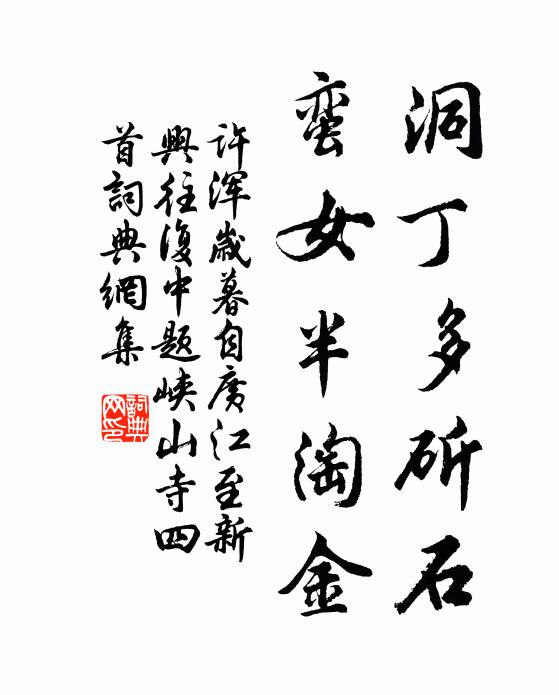 洞丁多斫石
蛮女半淘金
许浑歲暮自广江至新
興往復中题峡山寺四
首詞典網集
詞典
网印